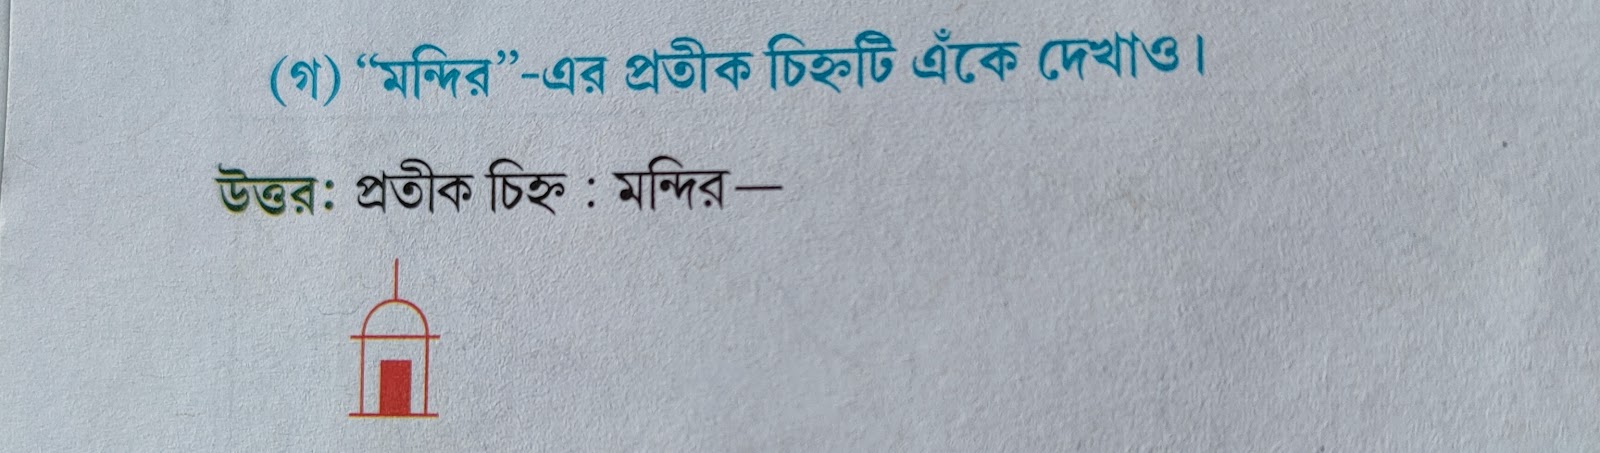 (গ) “মন্দির”-এর প্রতীক চিহ্নটি এঁকে দেখাও।
উত্তর: প্রতীক চিহ্ন : মন্দির—